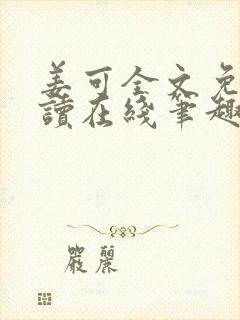 姜可全文免
讀在綫筆趣
嚴麗